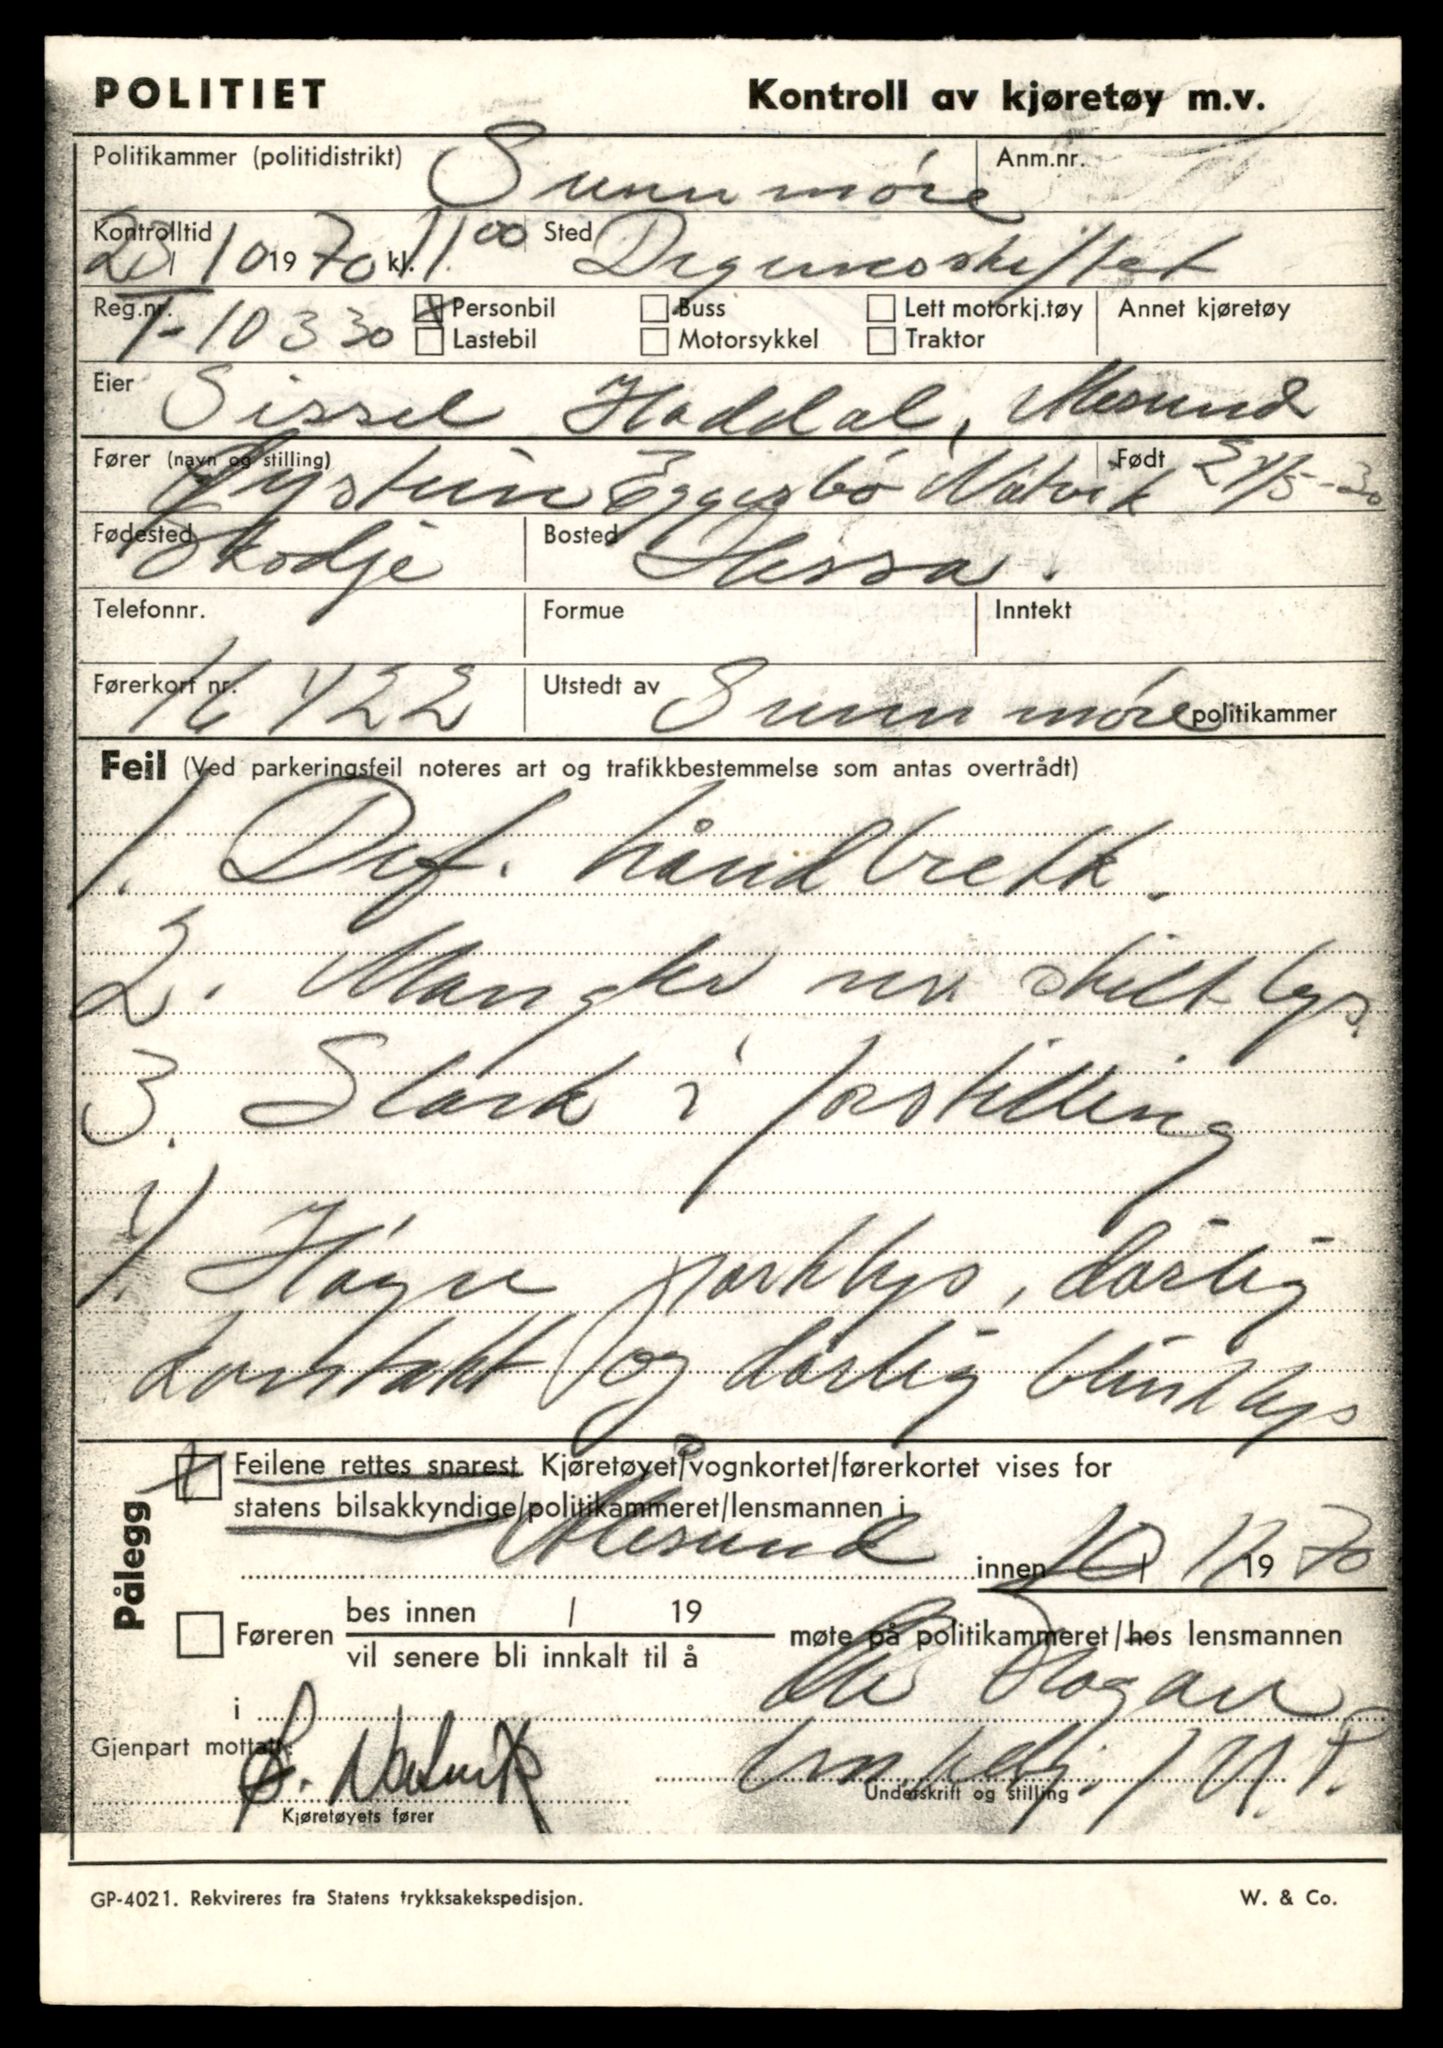 POLITIET Kontroll av kjøretøy m.v.
Politikammer (politidistrikt) Sunnmøre Anm.nr.
Kontrolltid 23/10 1970 kl. 11.00 Sted Digerneskiftet
Reg.nr. T-10330 Personbil Buss Lett motorkj.tøy Annet kjøretøy
Lastebil Motorsykkel Traktor
Eier Sissel Haddal, Ålesund
Fører (navn og stilling) Øystein Eggesbö Natvik Født 24/5-30
Fødested Skodje Bosted Hessa.
Telefonnr. Formue Inntekt
Førerkort nr. 16422 Utstedt av Sunnmøre politikammer
Feil (Ved parkeringsfeil noteres art og trafikkbestemmelse som antas overtrådt)
1. Def. håndbrekk.
2. Mangler skiltlys.
3. Slark i forstilling
4. Høgre parklys, dårlig
kontakt og dårlig blinklys
Pålegg Feilene rettes snarest. Kjøretøyet/vognkortet/førerkortet vises for
statens bilsakkyndige/politikammeret/lensmannen i
Ålesund innen 10/11 1970
bes innen / 19
Føreren møte på politikammeret/hos lensmannen
vil senere bli innkalt til å
i
Gjenpart mottatt: Ø. Natvik U.P.
Kjøretøyets fører Underskrift og stilling
GP-4021. Rekvireres fra Statens trykksakekspedisjon. W. & Co.